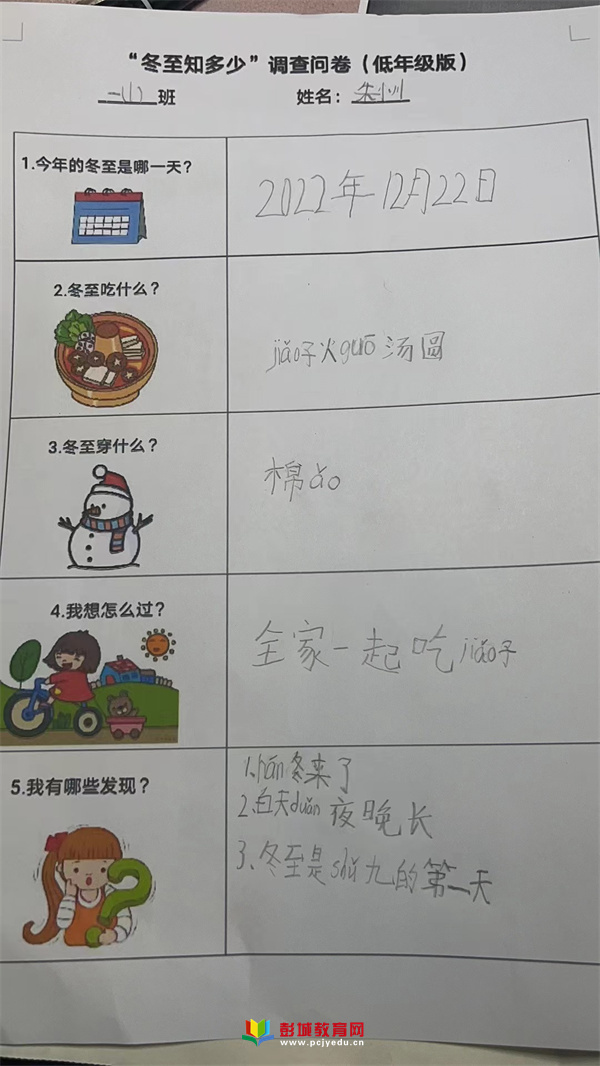 “冬至知多少”调查问卷（低年级版）
一(1)班 姓名：朱
1.今年的冬至是哪一天？
2022年12月22日
2.冬至吃什么？
jiǎo子火guō汤圆
3.冬至穿什么？
棉ǎo
4.我想怎么过？
全家一起吃jiǎo子
5.我有哪些发现？
1.hán冬来了
2.白天duǎn夜晚长
3、冬至是shǔ九的第一天
彭城教育网
www.pcjyedu.cn